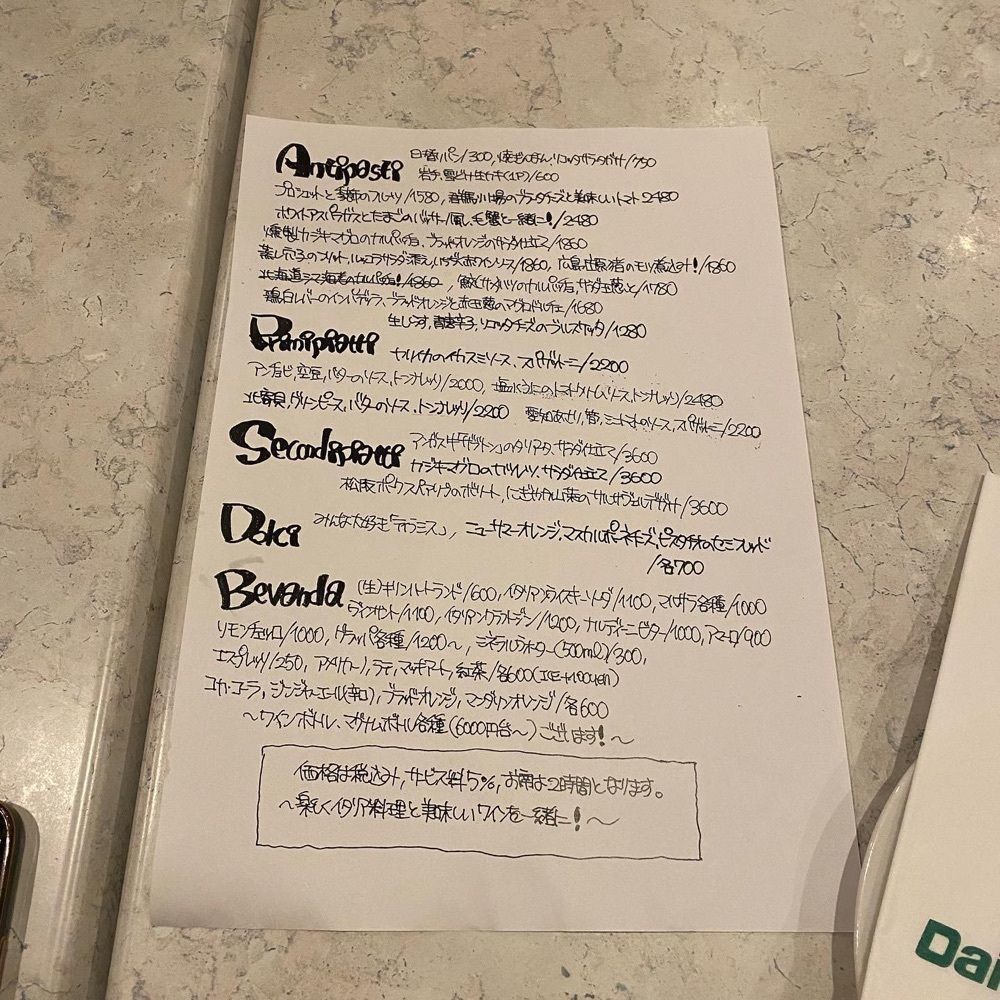 Antipasti 日替パン/300, 焼きいんげん、リコッタサラダがけ/750
岩手、雪どけ生ガキ(1P)/600
プロシュットと季節のフルーツ/1580, 群馬川場のブッラータチーズと美味しいトマト2480
ホワイトアスパラガスとたまごのバッサーノ風、毛蟹と一緒に!/2480
燻製カジキマグロのカルパッチョ、ブラッドオレンジのサラダ仕立て/1860
蒸し穴子のフリット、ルッコラサラダ添え、バルサミコ赤ワインソース/1860, 広島熊猪のモツ煮込み!/1860
北海道シマ海老のカルパッチョ!/1860, 鮫サメガレイのカルパッチョ、サラダ玉葱と/1780
鶏白レバーのインパデッラ、ブラッドオレンジと赤玉葱のアグロドルチェ/1680
生しらす、青唐辛子、リコッタチーズのブルスケッタ/1280
Primipiatti ヤリイカのイカスミソース、スパゲットーニ/2200
アンチョビ、空豆、バターのソース、トンナレッリ/2000, 塩水うにのトマトクリームソース、トンナレッリ/2480
北寄貝、グリーンピース、バターのソース、トンナレッリ/2200 愛知あさり、筍、ミニトマトのソース、スパゲットーニ/2200
Secondipiatti アンガス牛「ザブトン」のタリアータ、サラダ仕立て/3600
カジキマグロのカツレツ、サラダ仕立て/3600
松阪ポークスペアリブのボリート、にぎやか山菜のサルサヴェルデがけ/3600
Dolci みんな大好き「ティラミス」, ニューサマーオレンジ、マスカルポーネチーズ、ピスタチオのセミフレッド
/各700
Bevanda (生)キリンハートランド/600, イタリアンウイスキーソーダ/1100, マルサラ各種/1000
ヴィンサント/1100, イタリアンクラフトジン/1200, ナルディーニビター/1000, アマーロ/900
リモンチェッロ/1000, グラッパ各種/1200~, ミネラルウォーター(500ml)/300,
エスプレッソ/250, アメリカーノ, ラテ, マッキアート, 紅茶/各600(ICE+100yen)
コカ・コーラ, ジンジャーエール(辛口), ブラッドオレンジ, マンダリンオレンジ/各600
~ワインボトル、マグナムボトル各種(6000円台~)ございます!~
価格は税込み, サービス料5%, お席は2時間となります。
~楽しくイタリア料理と美味しいワインを一緒に!~
Dai